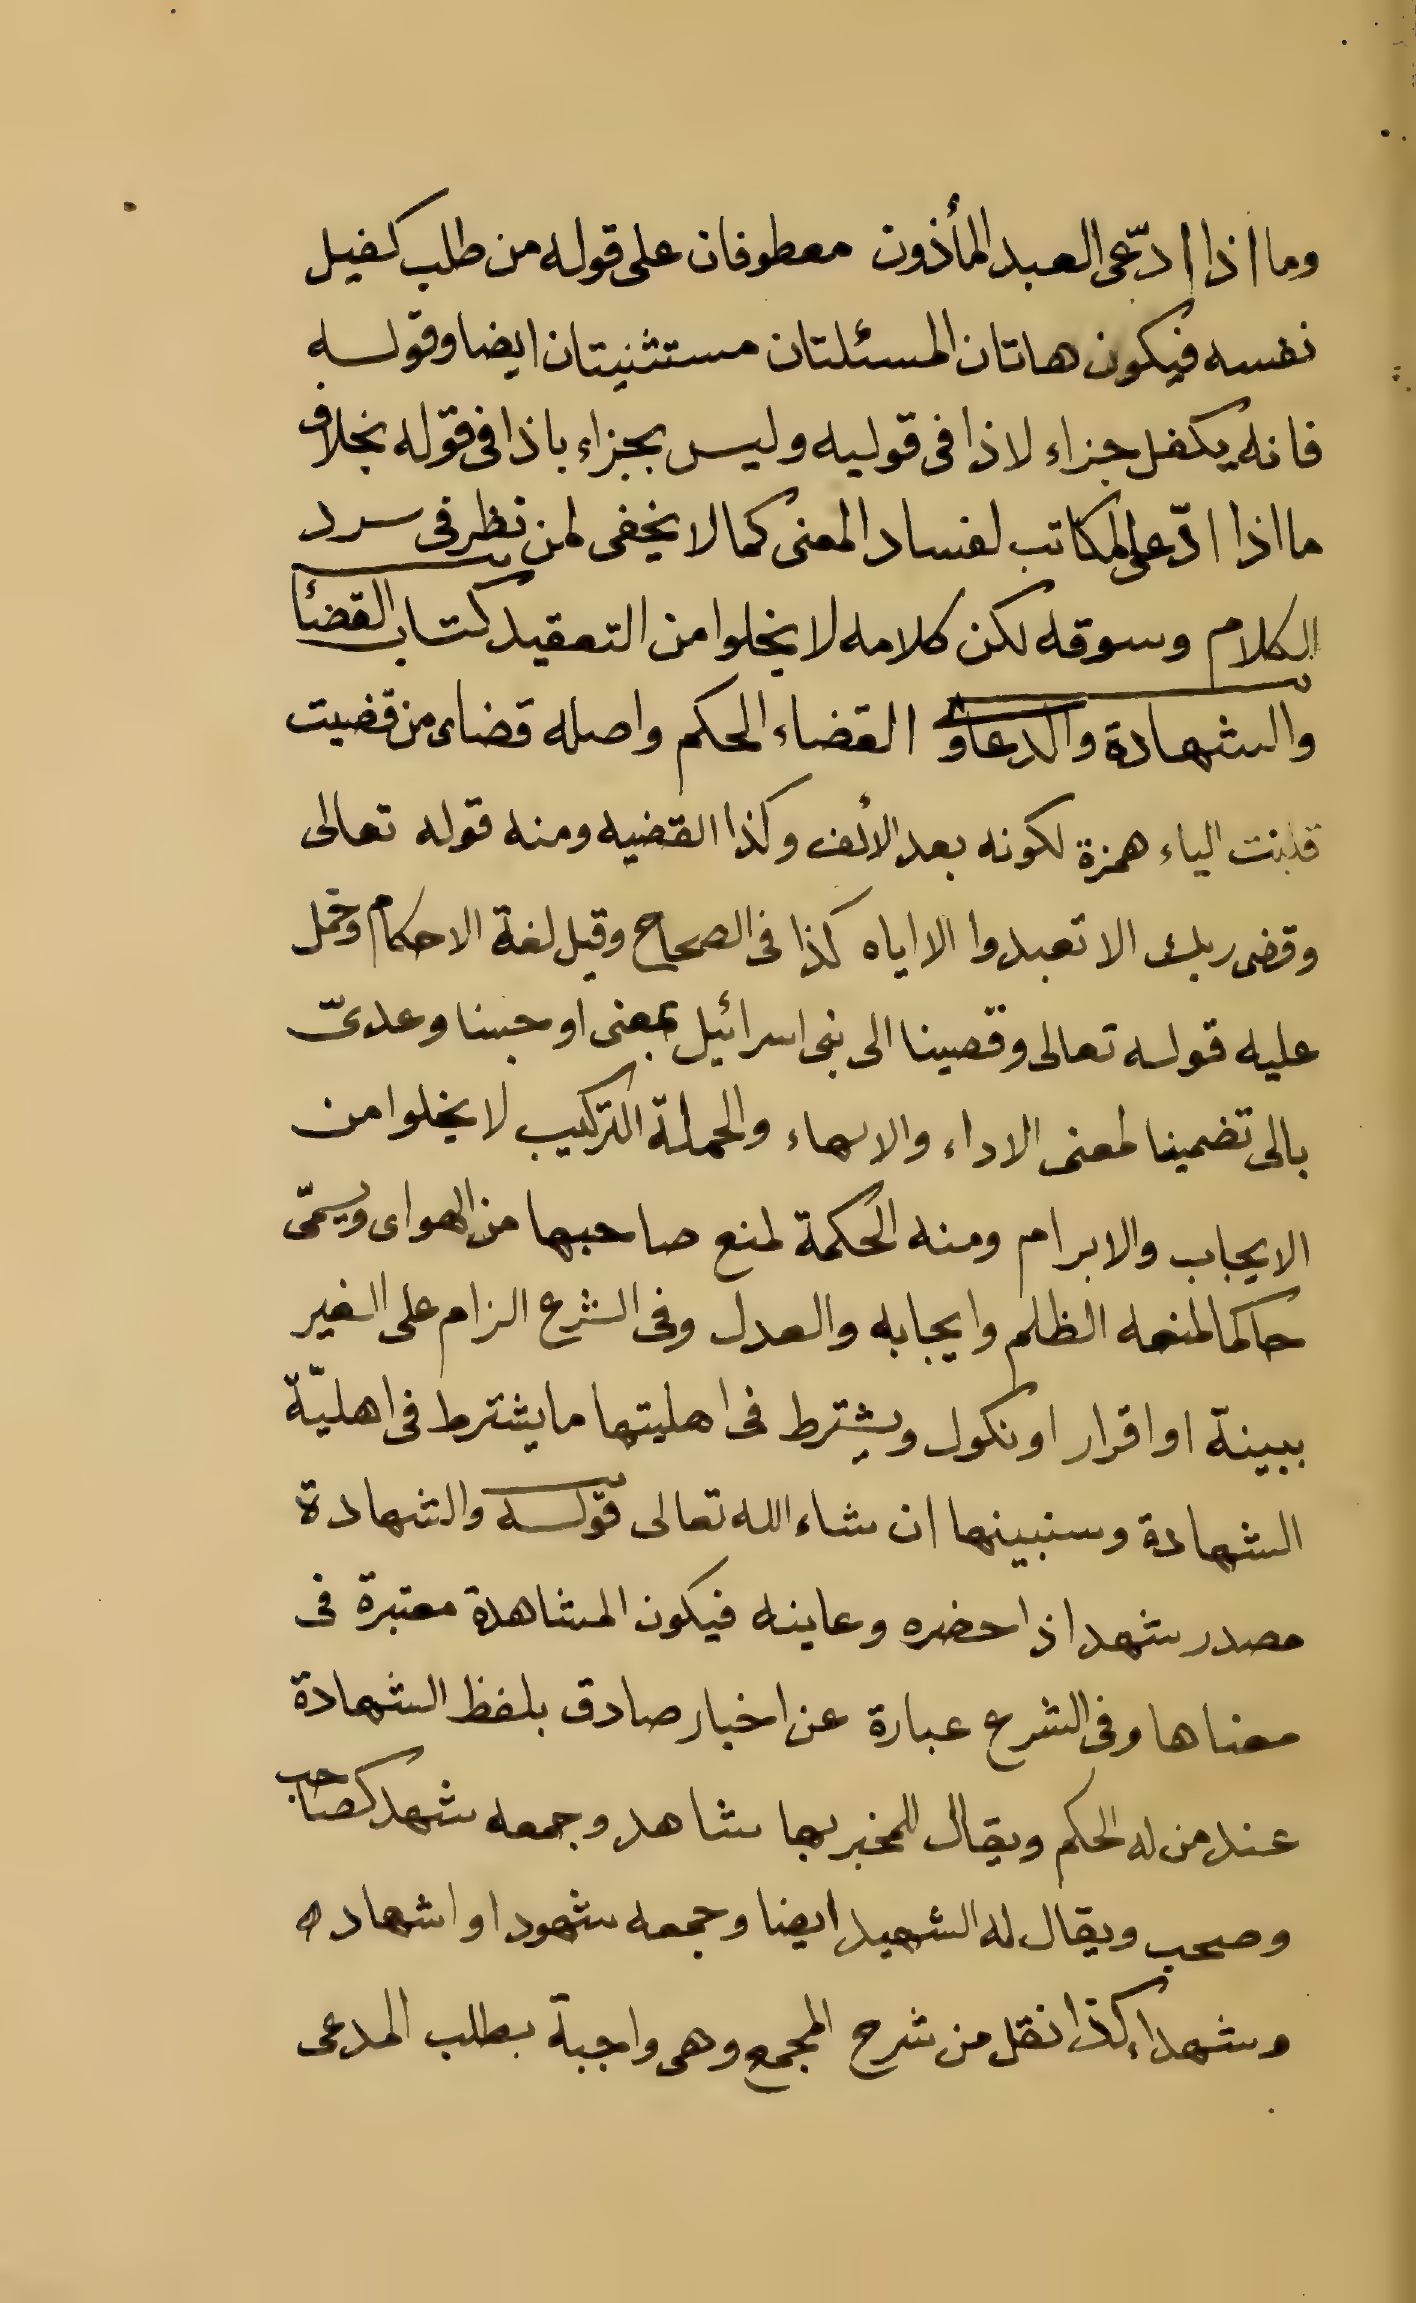 وما اذا ادّعى العبد المأذون معطوفان على قوله من طلب كفيل
نفسه فيكون هاتان المسئلتان مستثنيتان ايضا وقوله
فانه يكفل جزاء لاذا فى قوليه وليس بجزاء باذا فى قوله بخلاف
ما اذا ادّعى المكاتب لفساد المعنى كما لا يخفى لمن نظر فى سرد
الكلام وسوقه لكن كلامه لا يخلوا من التعقيد كتاب القضأ
والشهادة والدعاوى القضاء الحكم واصله قضاى من قضيت
قلبت الياء همزة لكونه بعد الألف وكذا القضيه ومنه قوله تعالى
وقضى ربك الا تعبدوا الا اياه كذا فى الصحاح وقيل لغة الاحكام وحمل
عليه قوله تعالى وقضينا الى بنى اسرائيل بمعنى اوجبنا وعدىّ
بالى تضمينا لمعنى الاداء والانهاء والجملة التركيب لا يخلوا من
الايجاب والابرام ومنه الحكمة لمنع صاحبها من الهواى ويسمّى
حاكما لمنعه الظلم وايجابه والعدل وفى الشرع الزام على الغير
ببينة او اقرار او نكول ويشترط فى اهليتها ما يشترط فى اهليّة
الشهادة وسنبينها ان شاء الله تعالى قوله والشهادة
مصدر شهد اذا حضره وعاينه فيكون المشاهدة معتبرة فى
معناها وفى الشرع عبارة عن اخبار صادق بلفظ الشهادة
عند من له الحكم ويقال للمخبر بها شاهد وجمعه شهد كصاحب
وصحب ويقال له الشهيد ايضا وجمعه شهود او اشهاده
وشهداء كذا نقل من شرح المجمع وهى واجبة بطلب المدعى